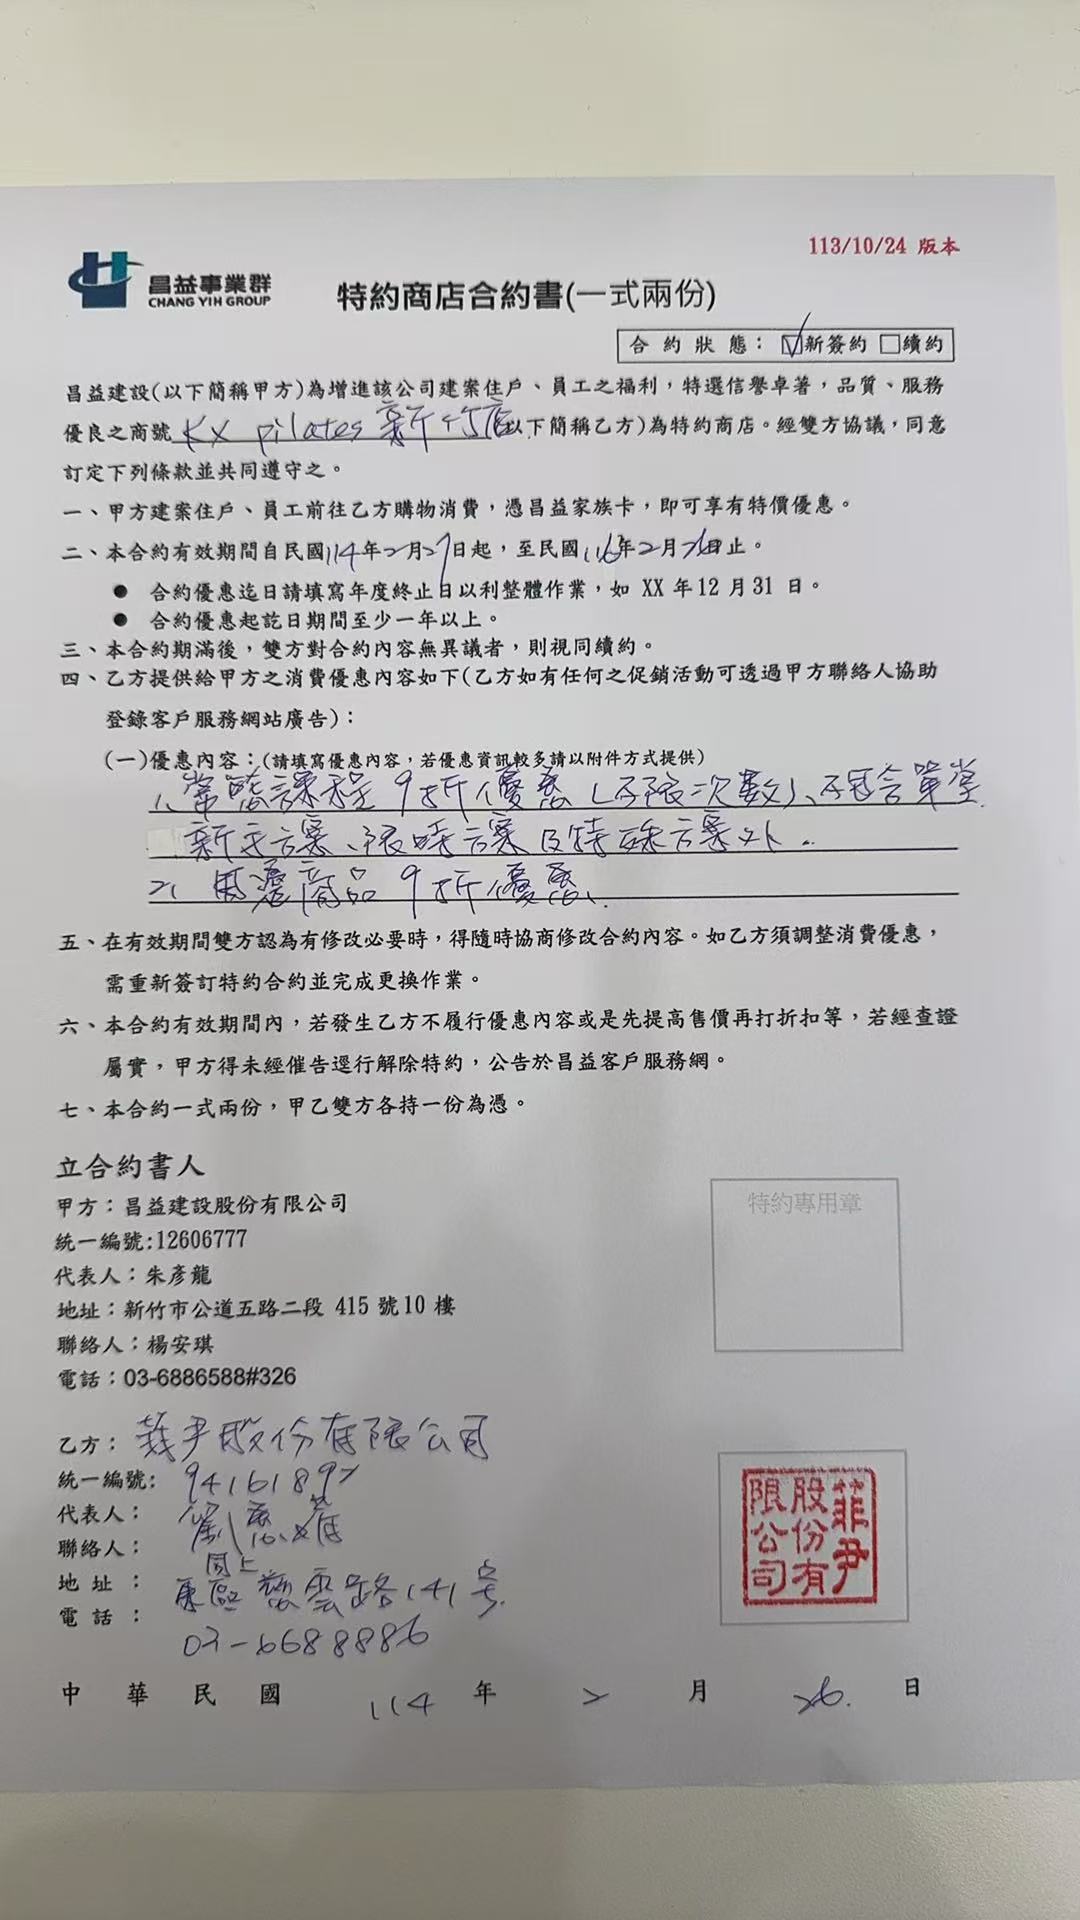 113/10/24 版本
昌益事業群
CHANG YIH GROUP
特約商店合約書(一式兩份)
合約狀態：☑新簽約 □續約
昌益建設(以下簡稱甲方)為增進該公司建案住戶、員工之福利，特選信譽卓著，品質、服務
優良之商號 KX pilates 新竹店 以下簡稱乙方)為特約商店。經雙方協議，同意
訂定下列條款並共同遵守之。
一、甲方建案住戶、員工前往乙方購物消費，憑昌益家族卡，即可享有特價優惠。
二、本合約有效期間自民國114年2月27日起，至民國116年2月26日止。
● 合約優惠迄日請填寫年度終止日以利整體作業，如 XX 年12月31 日。
● 合約優惠起訖日期間至少一年以上。
三、本合約期滿後，雙方對合約內容無異議者，則視同續約。
四、乙方提供給甲方之消費優惠內容如下(乙方如有任何之促銷活動可透過甲方聯絡人協助
登錄客戶服務網站廣告)：
(一)優惠內容：(請填寫優惠內容，若優惠資訊較多請以附件方式提供)
1、常態課程 9折優惠(不限次數)、不包含單堂
新手方案、限時方案及特殊方案外..
2、周邊商品 9折優惠、
五、在有效期間雙方認為有修改必要時，得隨時協商修改合約內容。如乙方須調整消費優惠，
需重新簽訂特約合約並完成更換作業。
六、本合約有效期間內，若發生乙方不履行優惠內容或是先提高售價再打折扣等，若經查證
屬實，甲方得未經催告逕行解除特約，公告於昌益客戶服務網。
七、本合約一式兩份，甲乙雙方各持一份為憑。
立合約書人
甲方：昌益建設股份有限公司
統一編號:12606777
代表人：朱彥龍
地址：新竹市公道五路二段 415 號10 樓
聯絡人：楊安琪
電話：03-6886588#326
特約專用章
乙方：菲尹股份有限公司
統一編號: 94161892
代表人：劉
聯絡人：同上
地址：東區慈雲路141號.
電話：03-6688886
菲尹股份有限公司
中華民國 114 年 2 月 26. 日